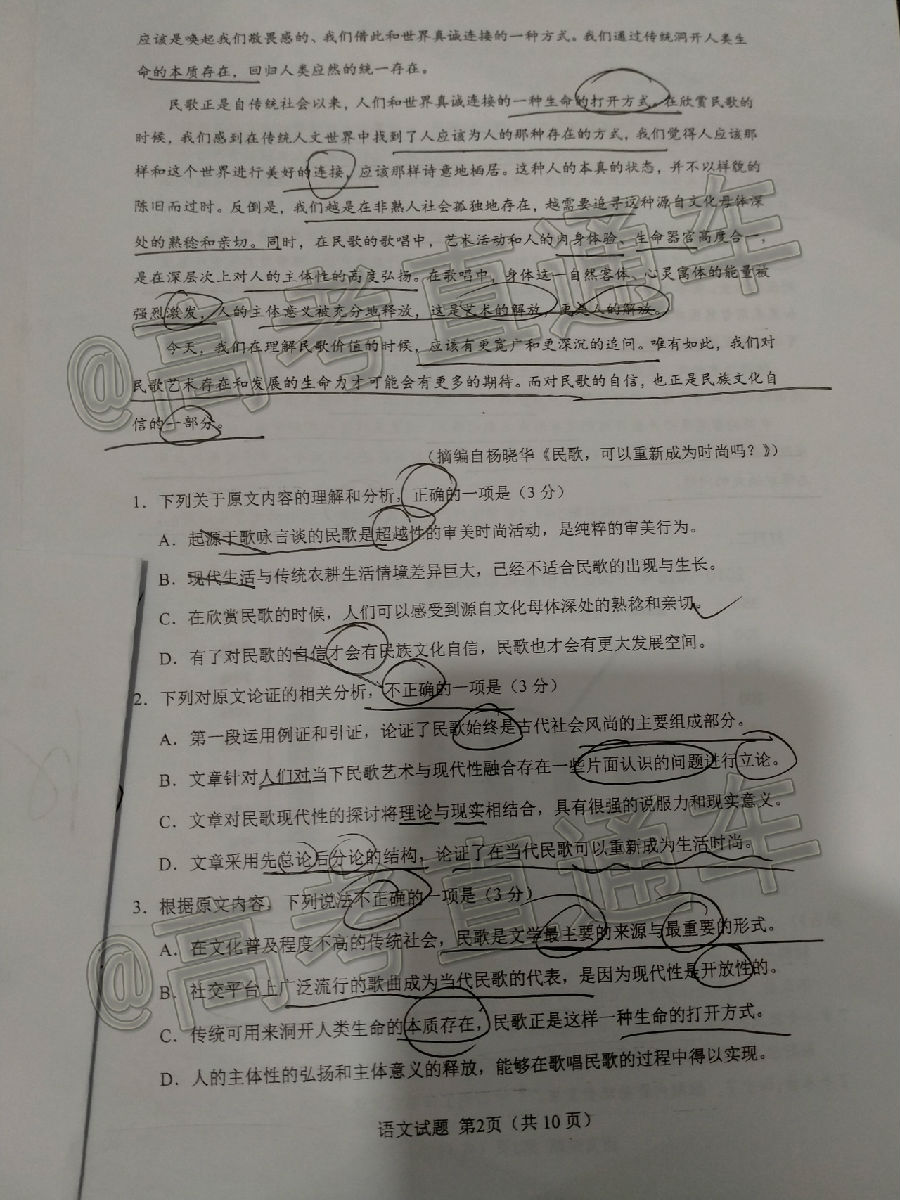 应该是唤起我们敬畏感的、我们借此和世界真诚连接的一种方式。我们通过传统洞开人类生
命的本质存在，回归人类应然的统一存在。
民歌正是自传统社会以来，人们和世界真诚连接的一种生命的打开方式。在欣赏民歌的
时候，我们感到在传统人文世界中找到了人应该为人的那种存在的方式，我们觉得人应该那
样和这个世界进行美好的连接，应该那样诗意地栖居。这种人的本真的状态，并不以样貌的
陈旧而过时。反倒是，我们越是在非熟人社会孤独地存在，越需要追寻这种源自文化母体深
处的熟稔和亲切。同时，在民歌的歌唱中，艺术活动和人的肉身体验、生命器官高度合一，
是在深层次上对人的主体性的高度弘扬。在歌唱中，身体这一自然客体、心灵寓体的能量被
强烈激发，人的主体意义被充分地释放，这是艺术的解放，更是人的解放。
今天，我们在理解民歌价值的时候，应该有更宽广和更深沉的追问。唯有如此，我们对
民歌艺术存在和发展的生命力才可能会有更多的期待。而对民歌的自信，也正是民族文化自
信的一部分。
（摘编自杨晓华《民歌，可以重新成为时尚吗？》）
1．下列关于原文内容的理解和分析，正确的一项是（3 分）
A．起源于歌咏言谈的民歌是超越性的审美时尚活动，是纯粹的审美行为。
B．现代生活与传统农耕生活情境差异巨大，已经不适合民歌的出现与生长。
C．在欣赏民歌的时候，人们可以感受到源自文化母体深处的熟稔和亲切。
D．有了对民歌的自信才会有民族文化自信，民歌也才会有更大发展空间。
2．下列对原文论证的相关分析，不正确的一项是（3 分）
A．第一段运用例证和引证，论证了民歌始终是古代社会风尚的主要组成部分。
B．文章针对人们对当下民歌艺术与现代性融合存在一些片面认识的问题进行立论。
C．文章对民歌现代性的探讨将理论与现实相结合，具有很强的说服力和现实意义。
D．文章采用先总论后分论的结构，论证了在当代民歌可以重新成为生活时尚。
3．根据原文内容，下列说法不正确的一项是（3 分）
A．在文化普及程度不高的传统社会，民歌是文学最主要的来源与最重要的形式。
B．社交平台上广泛流行的歌曲成为当代民歌的代表，是因为现代性是开放性的。
C．传统可用来洞开人类生命的本质存在，民歌正是这样一种生命的打开方式。
D．人的主体性的弘扬和主体意义的释放，能够在歌唱民歌的过程中得以实现。
语文试题 第2页（共 10 页）
@高考直通车
@高考直通车